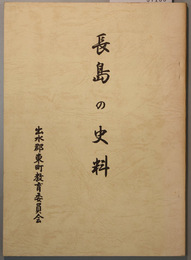 長島の史料
出水郡東町教育委員会